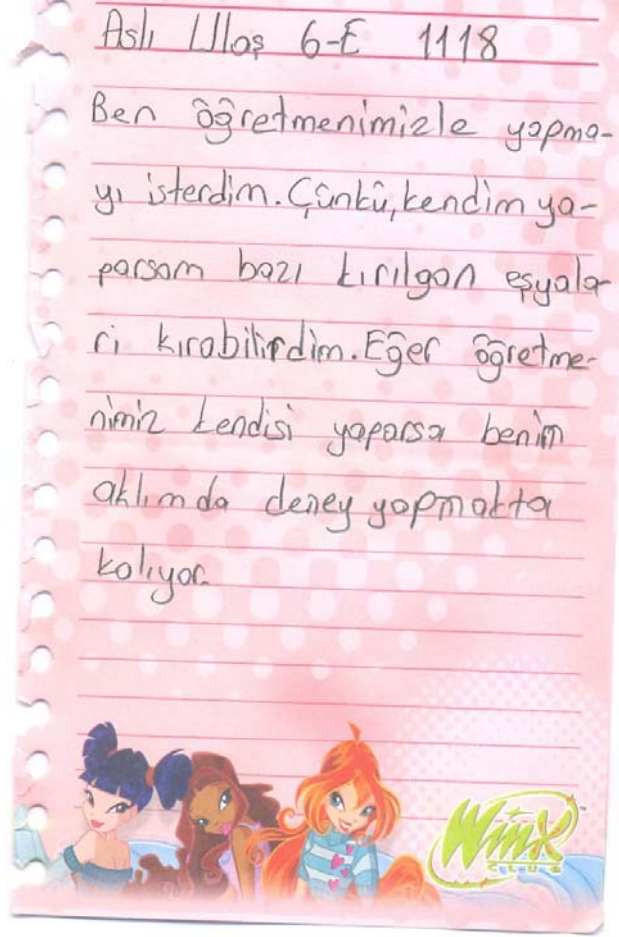 Aslı Ulaş 6-E 1118
Ben öğretmenimizle yapma-
yı isterdim. Çünkü, kendim ya-
parsam bazı kırılgan eşyala
ri kırabilirdim. Eğer öğretme-
nimiz kendisi yaparsa benim
aklımda deney yapmakta
kalıyor.
Winx
CLUB